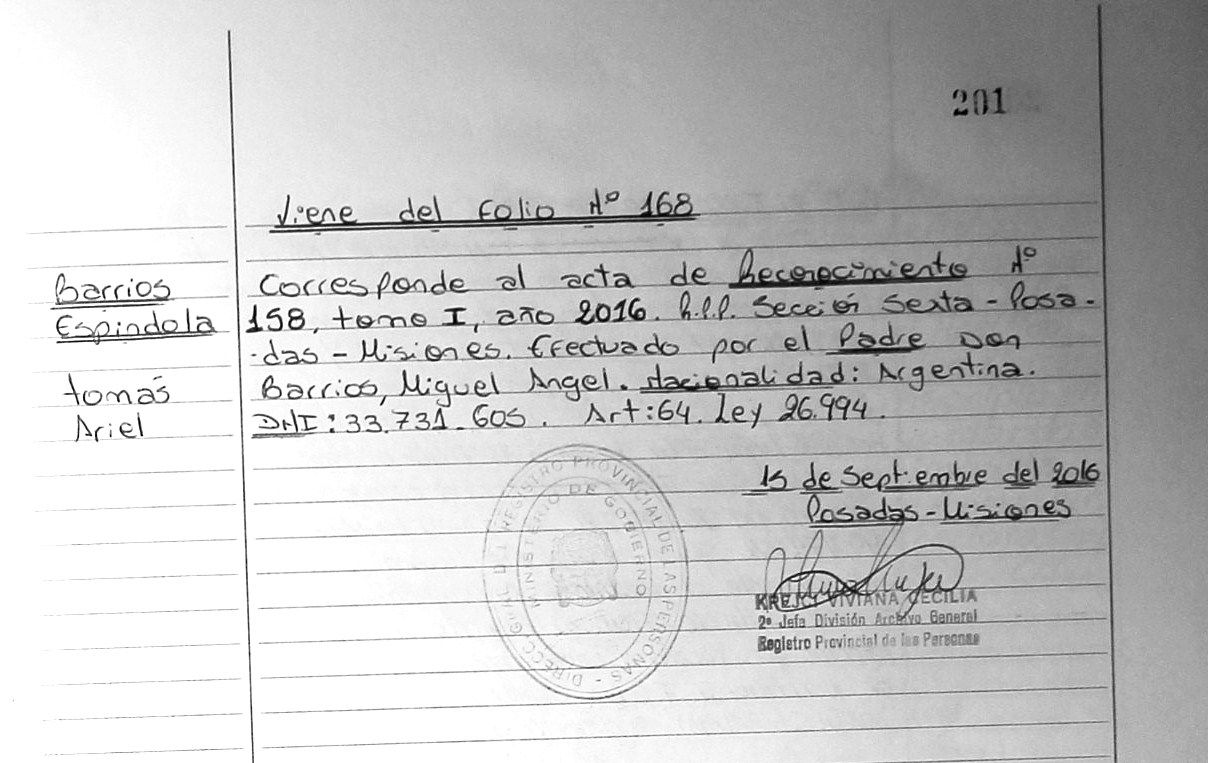 201
Viene del Folio Nº 168
Barrios
Espindola
tomás
Ariel
Corresponde al acta de Reconocimiento Nº
158, tomo I, año 2016. R.P.P. Sección Sexta - Posa-
-das - Misiones. Efectuado por el Padre Don
Barrios, Miguel Angel. Nacionalidad: Argentina.
DNI: 33.731.605. Art: 64. Ley 26.994.
15 de Septiembre del 2016
Posadas - Misiones
KREJCI VIVIANA CECILIA
2º Jefa División Archivo General
Registro Provincial de las Personas
DIRECC. GRAL. DEL REGISTRO PROVINCIAL DE LAS PERSONAS -
MINISTERIO DE GOBIERNO